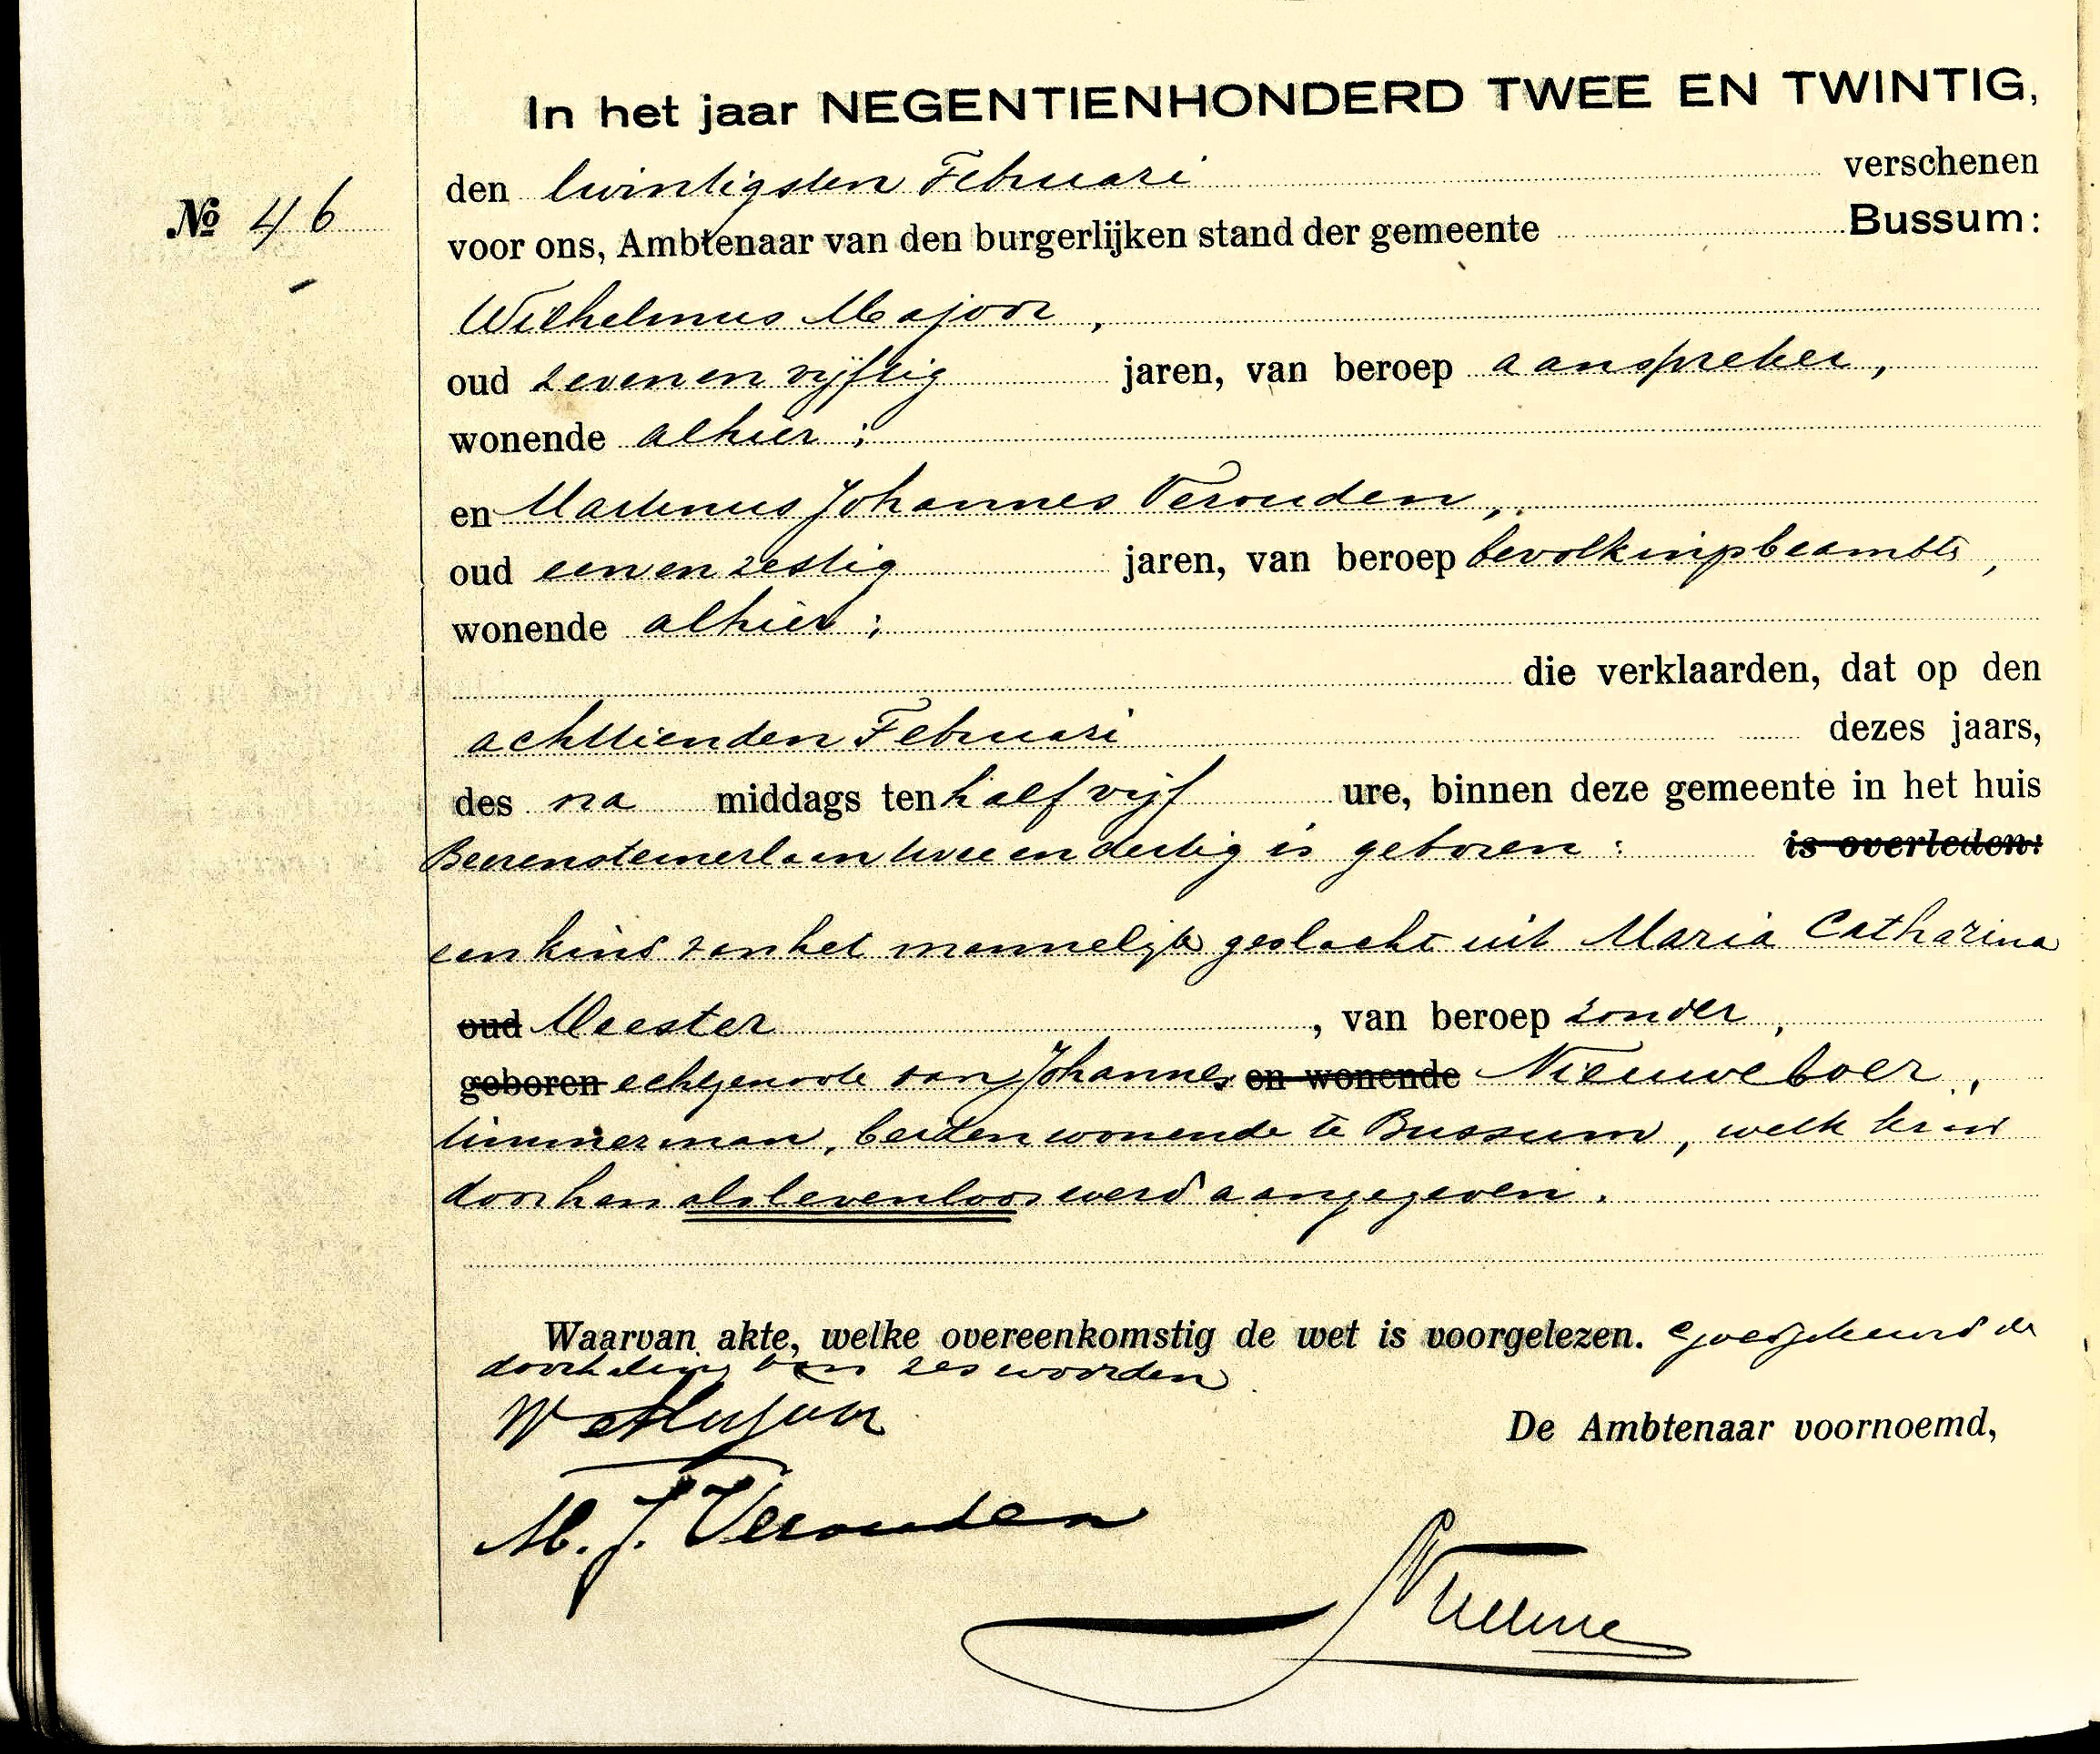 In het jaar NEGENTIENHONDERD TWEE EN TWINTIG,
den twintigsten Februari verschenen
№ 46
voor ons, Ambtenaar van den burgerlijken stand der gemeente Bussum:
Wilhelmus Majoor,
oud zevenenvijftig jaren, van beroep aanspreker,
wonende alhier;
en Martinus Johannes Verouden,
oud eenenzestig jaren, van beroep bevolkingsbeambte,
wonende alhier;
die verklaarden, dat op den
achttienden Februari dezes jaars,
des na middags ten half vijf ure, binnen deze gemeente in het huis
Beerensteinerlaan tweeendertig is geboren: is overleden:
een kind van het mannelijk geslacht uit Maria Catharina
oud Meester, van beroep zonder,
geboren echtgenoote van Johannes en wonende Nieuweboer,
timmerman, beiden wonende te Bussum, welk kind
door hen als levenloos werd aangegeven.
Waarvan akte, welke overeenkomstig de wet is voorgelezen. Goedgekeurd de
doorhaling van zes woorden.
W Majoor
De Ambtenaar voornoemd,
M. J. Verouden